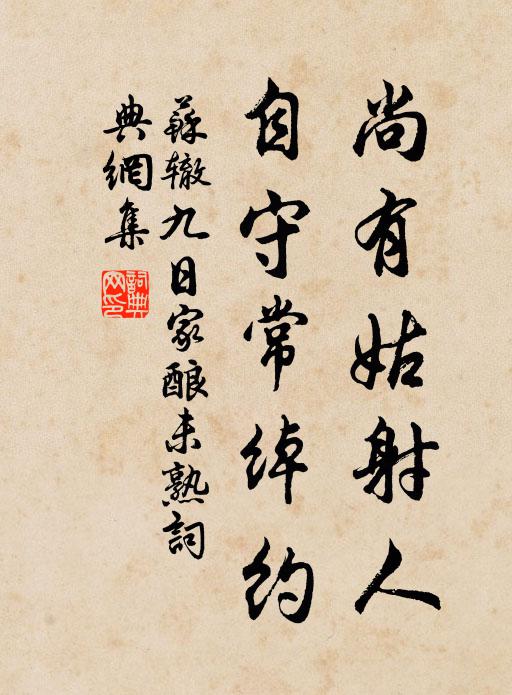 尚有姑射人
自守常綽約
蘇辙九日家酿未熟詞
典網集
詞典网印